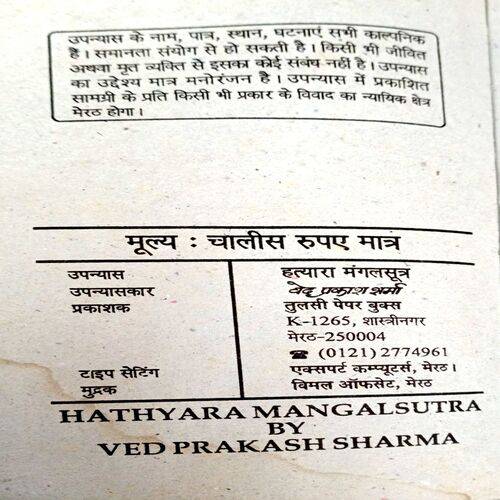 उपन्यास के नाम, पात्र, स्थान, घटनाएं सभी काल्पनिक
है। समानता संयोग से हो सकती है। किसी भी जीवित
अथवा मृत व्यक्ति से इसका कोई संबंध नहीं है। उपन्यास
का उद्देश्य मात्र मनोरंजन है। उपन्यास में प्रकाशित
सामग्री के प्रति किसी भी प्रकार के विवाद का न्यायिक क्षेत्र
मेरठ होगा।
मूल्य : चालीस रुपए मात्र
उपन्यास हत्यारा मंगलसूत्र
उपन्यासकार वेद प्रकाश शर्मा
प्रकाशक तुलसी पेपर बुक्स
K-1265, शास्त्रीनगर
मेरठ-250004
☎ (0121) 2774961
टाइप सेटिंग एक्सपर्ट कम्प्यूटर्स, मेरठ।
मुद्रक विमल ऑफसेट, मेरठ
HATHYARA MANGALSUTRA
BY
VED PRAKASH SHARMA